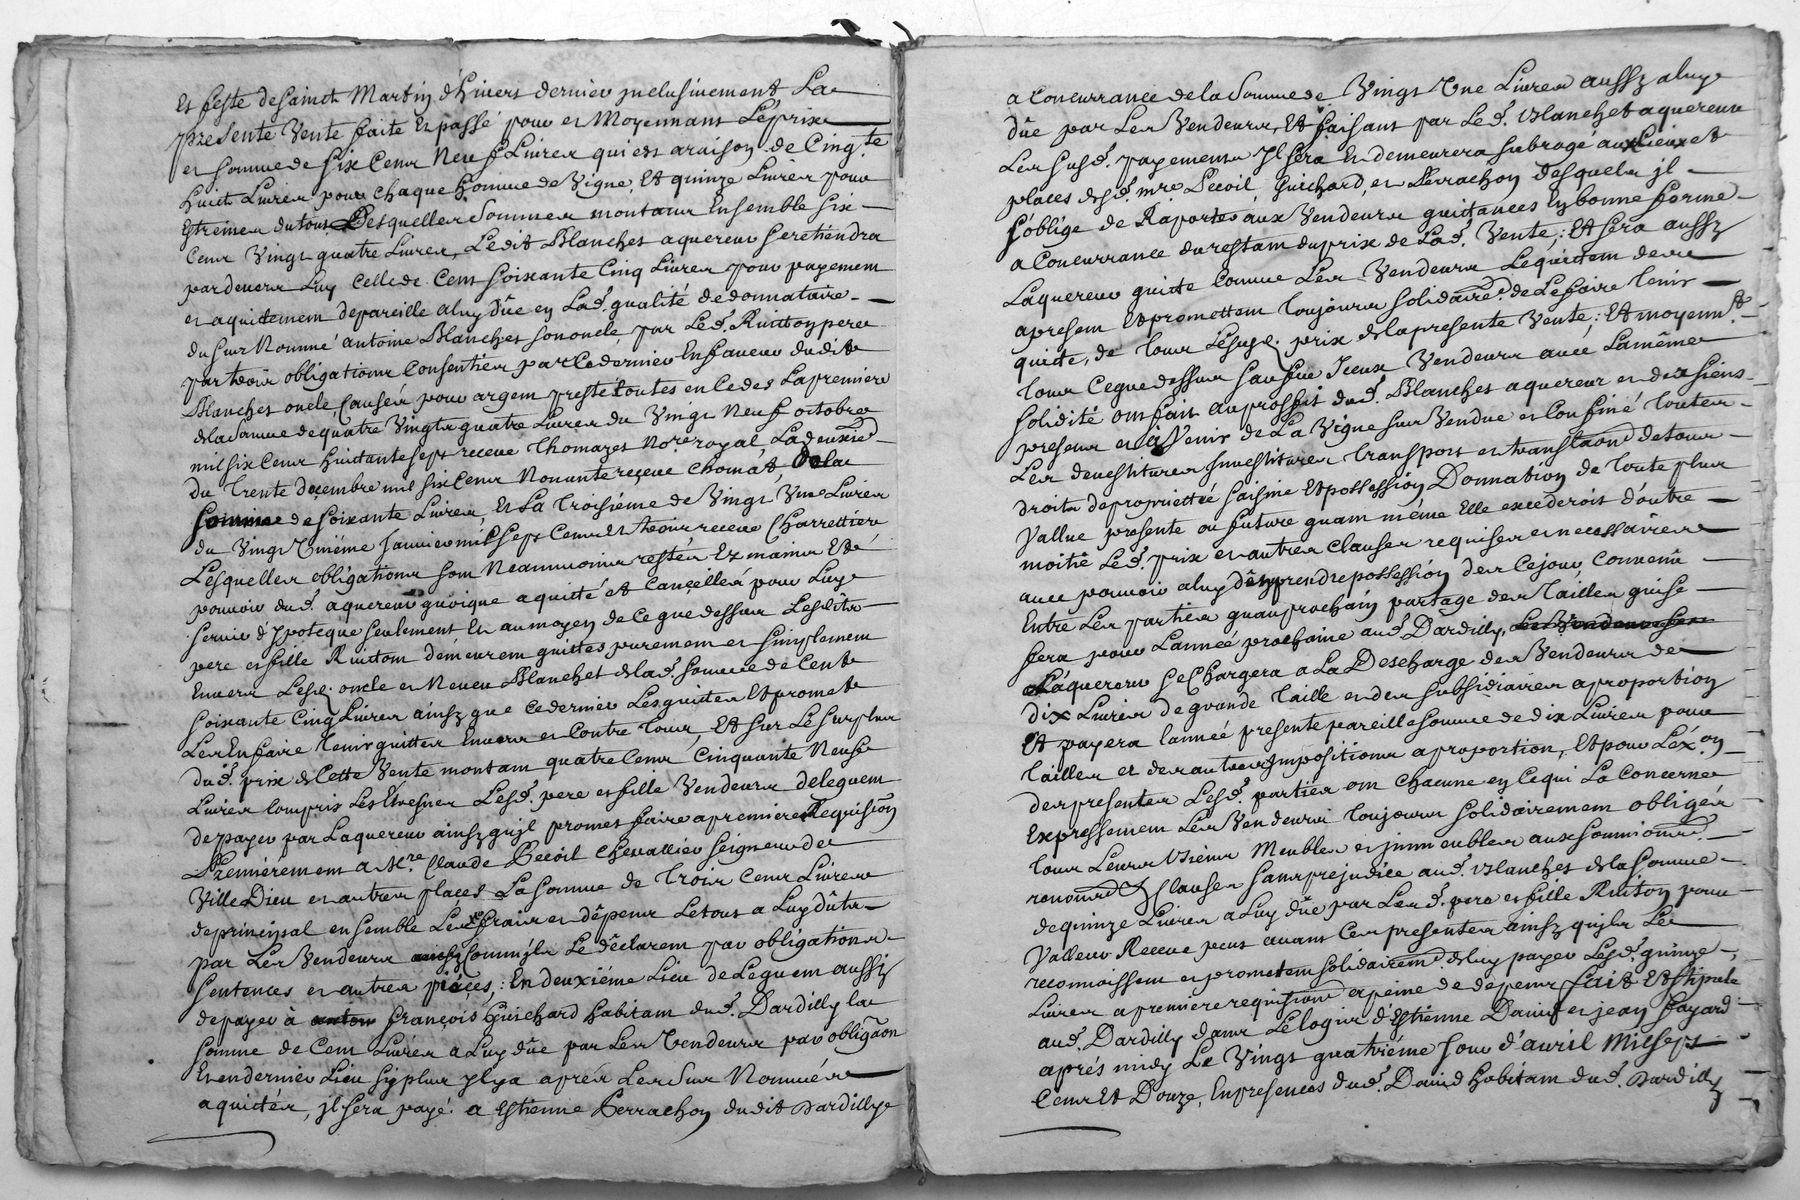 Et feste de Sainct Martin d'hivers dernier jnclusivement La
presente Vente faite Et passé pour et Moyennant Le prix
et somme de Six Cent Neuf Livres qui est a raison de Cinq.te
huict Livres pour chaque homme de Vigne, Et quinze Livres pour
Estreines du tout Desquelles Sommes montant Ensemble Six
Cent Vingt quatre Livres, Ledit Blanchet aquereur se retiendra
par devers Luy Celle de Cent Soixante Cinq Livres pour payement
et aquittement de pareille a luy dûe en Lad.e qualité de donnataire
du sus Nommé antoine Blanchet son oncle, par Led. Ruitton pere
par trois obligations Consenties par Ce dernier En faveur dudit
Blanchet oncle, Causées pour argent presté toutes en Ledes La premiere
de la Somme de quatre Vingts quatre Livres du Vingt Neuf octobre
mil six Cent huictante sept receue Thomazet No.re royal La deuxié
du Trente decembre mil six Cent Nonante receue thomat, de la
Somme de soixante Livres, Et La Troisiéme de Vingt Une Livres
du Vingt Uniéme Janvier mil sept Cent Et trois receue Charrettier
Lesquelles obligations sont Neanmoins restés Ez mains Et de
pouvoir dud. aquereur quoique aquitté et Cancellés pour Luy
Servir d'ypoteque seulement Et au moyen de Ce que dessus Lesdits
pere et fille Ruitton demeurent quittes purement et simplement
Envers Lesd. oncle et Neveu Blanchet de lad. somme de Cent
Soixante Cinq Livres ainsy que Ce dernier Les quitte Et promet
Les En faire Tenir quittes Envers et Contre Tous, Et sur Le surplus
dud. prix de Cette Vente montant quatre Cent Cinquante Neuf
Livres Compris Les Etresnes Lesd. pere et fille Vendeurs deleguent
de payer par Laquereur ainsy qu'il promet faire a premiere Requision
Premièrement a M.re Claude Pecoil Chevallier Seigneur de
Ville Dieu et autres places La somme de Trois Cent Livres
de principal ensemble Les fraix et dêpens Le tout a Luy dûts
par Les Vendeurs comm'ils Le dêclarent par obligations
Sentences et autres pieces,: En deuxiéme Lieu deLeguent aussy
de payer à anton françois Guichard habitant dud. Dardilly la
somme de Cent Livres a Luy dûe par Les Vendeurs par obligâon
Et en dernier Lieu sy plus jl y a aprés Les sus Nommés
aquictés, jl sera payé a Estienne Perrachon dudit Dardilly
a Concurrance de la Somme de Vingt Une Livres aussy a luy
dûe par Les Vendeurs, Et faisant par Led. Blanchet aquereur
Les susd. payements Il sera Et demeurera subrogé aux Lieux et
places desd. mre Pecoil, Guichard, et Perrachon desquels jl
s'oblige de Raporter aux Vendeurs quittances En bonne forme
a Concurrance du restant du prix de Lad. Vente,: Et sera aussy
Laquereur quitte Comme Les Vendeurs Le quittent des
apresent Et promettent Toujours Solidaire.t de Le faire Tenir
quitte, de Tout Le susd. prix de la presente Vente,: Et moyenn.t
Tout Ce que dessus sus jceux Vendeurs avec La même
Solidité ont fait au proffit dud. Blanchet aquereur et des siens
presens et a Venir de La Vigne sus Vendue et Confiné Toutes
Les devestitures Investitures Transport et translaôn de tous
droits de propriettéé saisine Et possession Donnation de Toute plus
Vallue presente ou future quand même Elle excederoit d'outre
moitié Led. prix et autres Clauses requises et necessaires
avec pouvoir a luy d'en prendre possession des Cejour Convenu
Entre Les parties qu'au prochain partage des Tailles qui se
fera pour L'année prochaine aud. Dardilly, Les Vendeurs
Láquereur se Chargera a La Descharge des Vendeurs de
dix Livres de grande Taille et des subsidiaires a proportion
Et payera lannéé presente pareille Somme de dix Livres pour
Tailles et des autres Impositions a proportion, Et pour L'éx.on
des presentes Lesd. parties ont Chacune en Ce qui La Concerne
Expressement Les Vendeurs Toujours Solidairement obligés
Tous Leurs Biens Meubles et jmmeubles aux soumions
renonâôns & Clauses sans prejudice aud. Blanchet de la somme
de quinze Livres a Luy dûe par Lesd. pere et fille Ruiton pour
Valleur Receue peus avant Ces presentes ainsy qu'ils Le
reconnoissent et promettent Solidairem.t de luy payer Lesd. quinze
Livres a premiere requision a peine de depens fait Et stipulé
aud. Dardilly dans Le logis d'Estienne David et jean fayard
aprés midy Le Vingt quatriéme Jour d'avril Mil sept
Cent Et Douze, En presences dud. David habitant dud. Dardilly